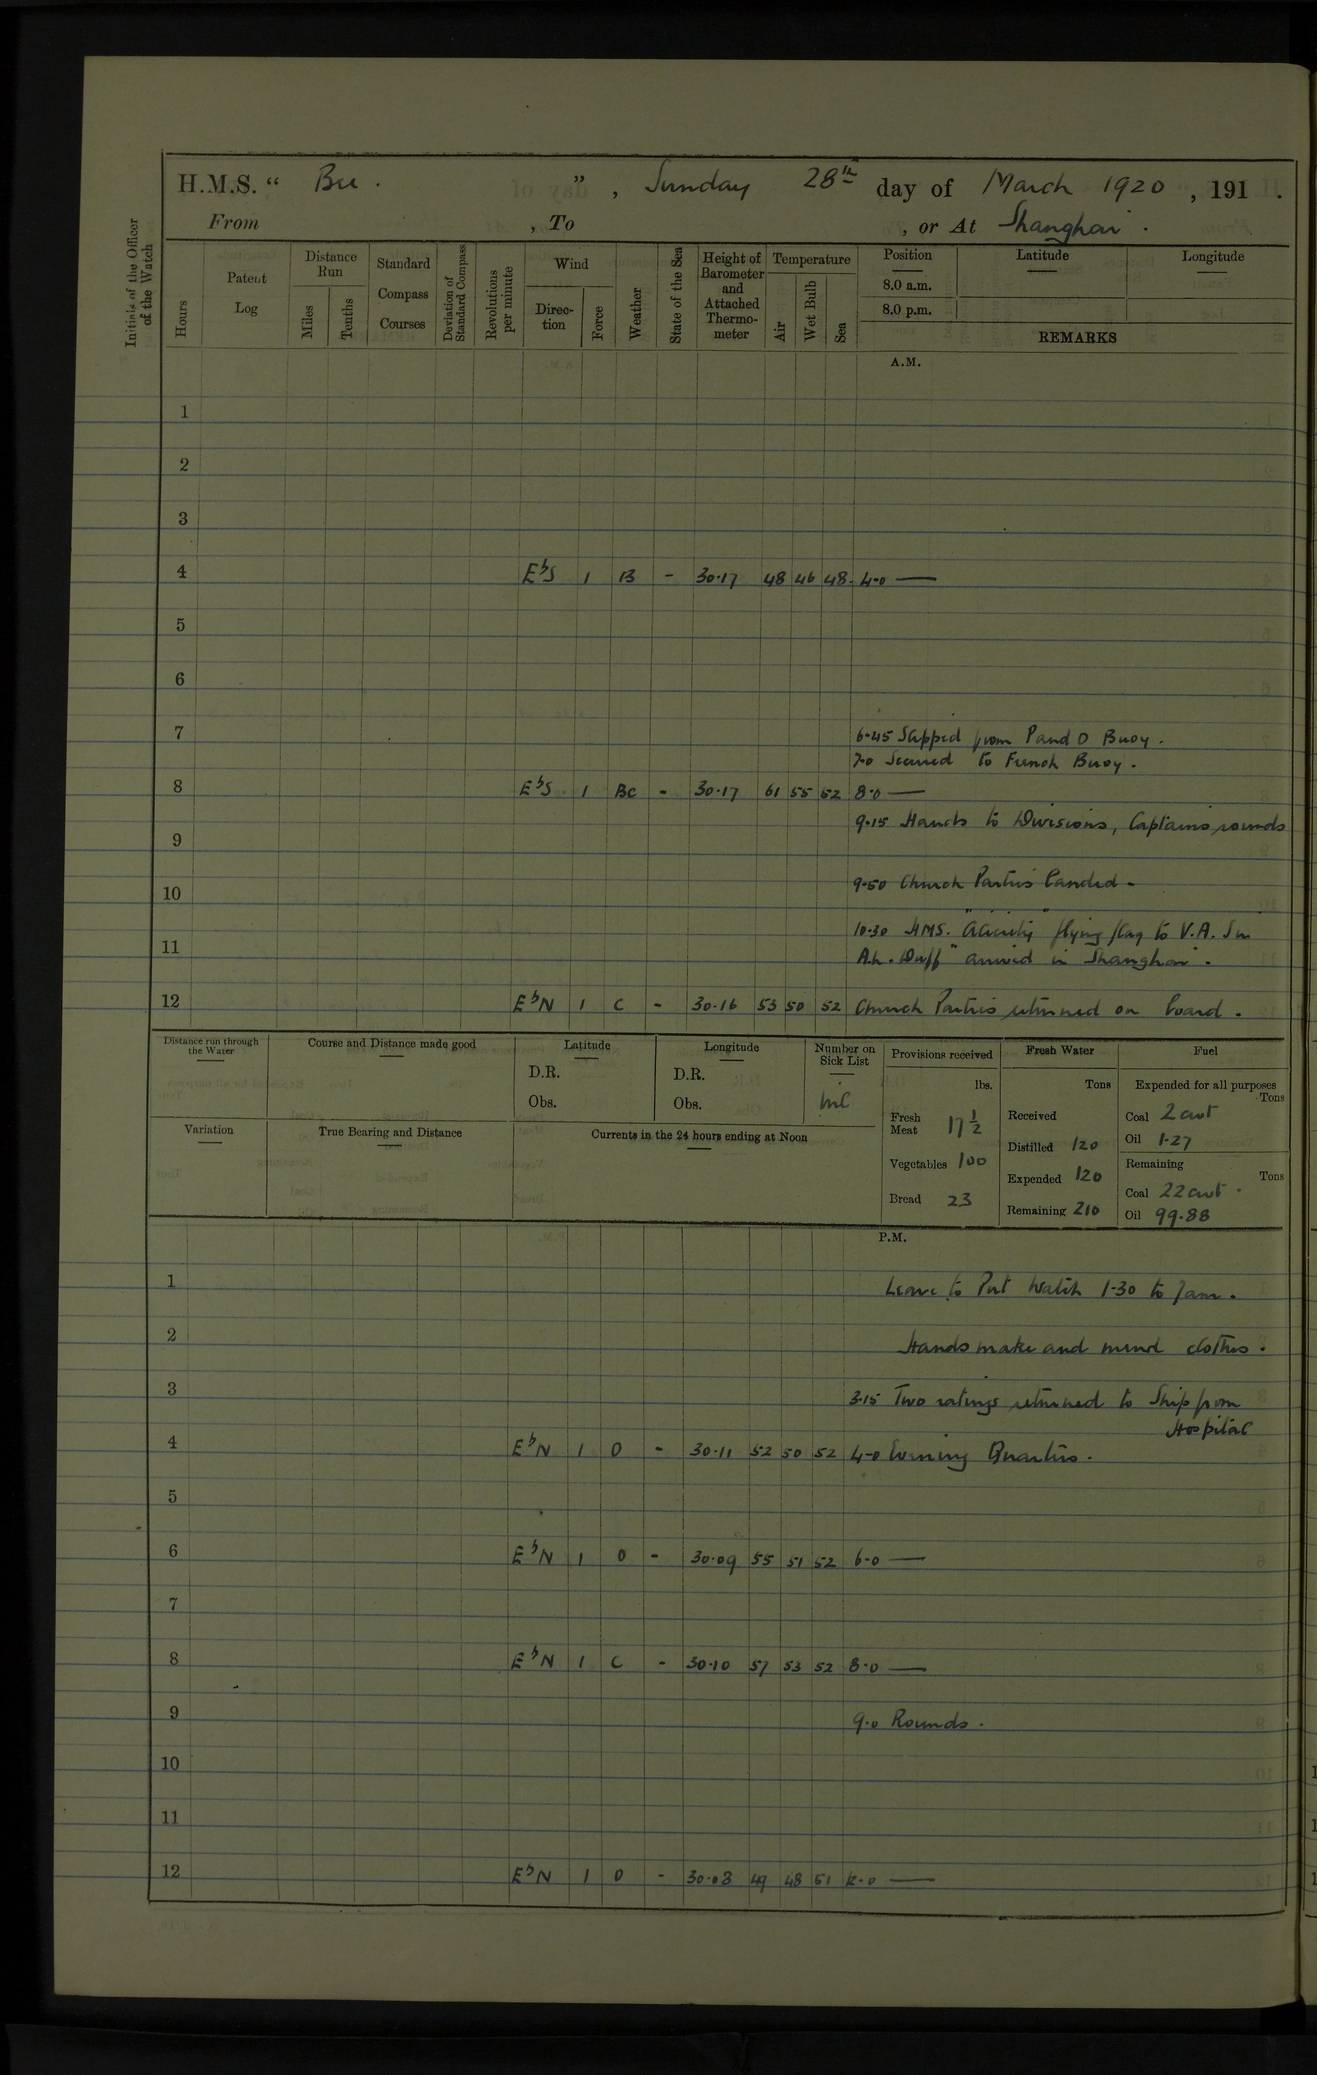 H.M.S. “ Bee . ” , Sunday 28th day of March 1920 , 191 .
From , To , or At Shanghai .
Initials of the Officer of the Watch
Hours
Patent Log
Distance Run
Miles
Tenths
Standard Compass Courses
Deviation of Standard Compass
Revolutions per minute
Wind
Direction
Force
Weather
State of the Sea
Height of Barometer and Attached Thermometer
Temperature
Air
Wet Bulb
Sea
Position
8.0 a.m.
8.0 p.m.
Latitude
Longitude
REMARKS
A.M.
1
2
3
4 EbS 1 B - 30·17 48 46 48 4-0 —
5
6
7 6-45 Slipped from P and O Buoy .
7-0 Secured to French Buoy .
8 EbS 1 BC - 30·17 61 55 52 8·0 —
9·15 Hands to Divisions, Captains rounds
9
9-50 Church Parties landed -
10
10-30 HMS. "Alacrity" flying flag to V.A. Sir
11
A.L. Duff" arrived in Shanghai .
12 EbN 1 C - 30·16 53 50 52 Church Parties returned on board .
Distance run through the Water
Course and Distance made good
Latitude
D.R.
Obs.
Longitude
D.R.
Obs.
Number on Sick List
nil
Provisions received
lbs.
Fresh Meat 17 1/2
Vegetables 100
Bread 23
Fresh Water
Tons
Received
Distilled 120
Expended 120
Remaining 210
Fuel
Expended for all purposes
Tons
Coal 2 cwt
Oil 1·27
Remaining
Tons
Coal 22 cwt .
Oil 99·88
Variation
True Bearing and Distance
Currents in the 24 hours ending at Noon
P.M.
1 Leave to Port Watch 1-30 to 7am .
2 Hands make and mend clothes .
3 3·15 Two ratings returned to Ship from
Hospital
4 EbN 1 O - 30·11 52 50 52 4-0 Evening Quarters .
5
6 EbN 1 O - 30·09 55 51 52 6-0 —
7
8 EbN 1 C - 30·10 57 53 52 8·0 —
9 9·0 Rounds .
10
11
12 EbN 1 O - 30·03 49 48 51 12·0 —